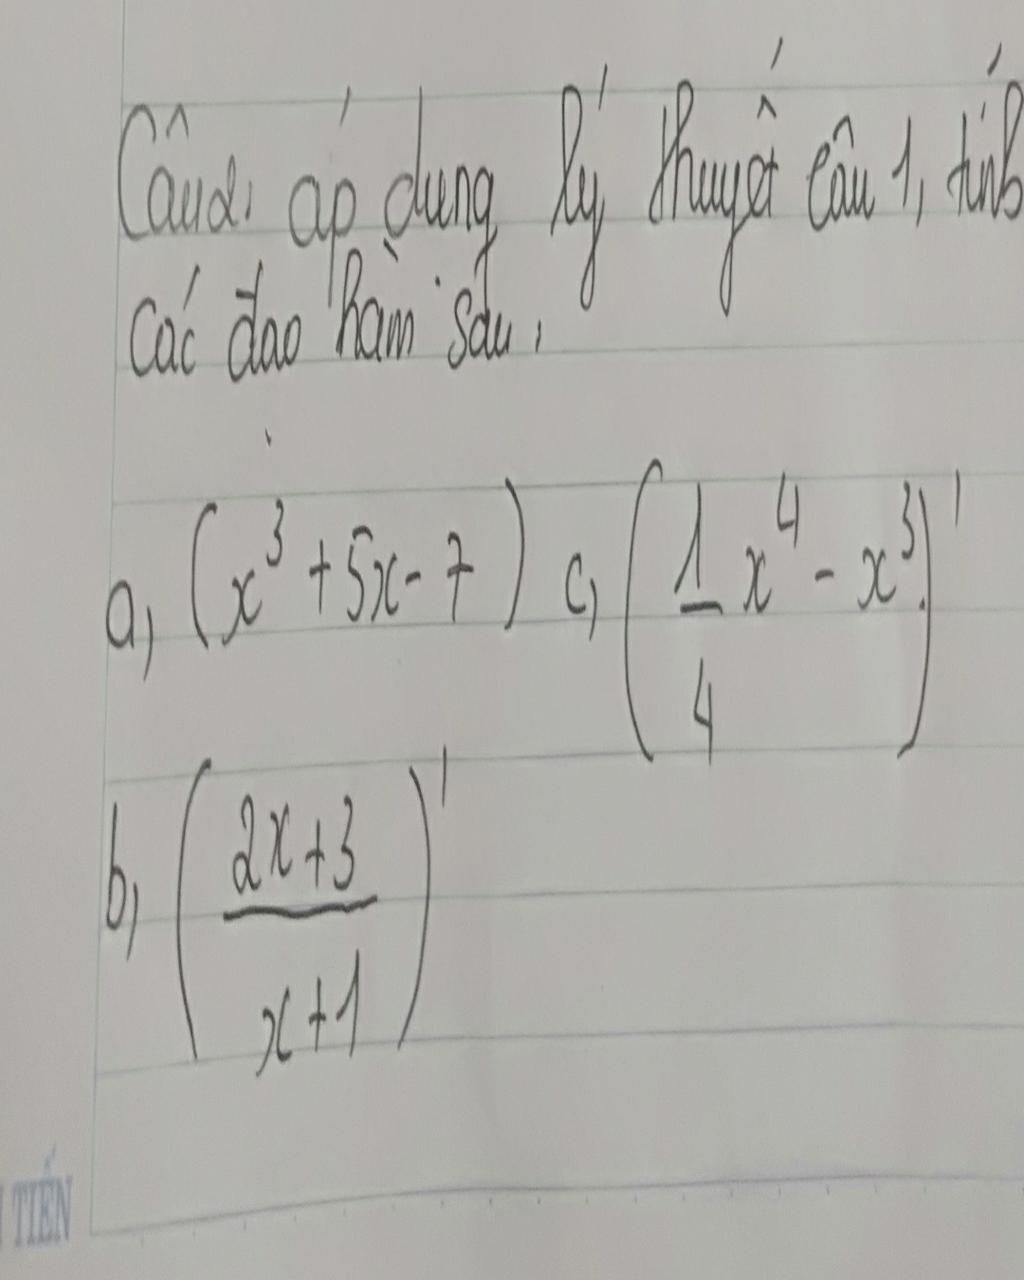 Câu 2, áp dụng lý thuyết câu 1, tính
các đạo hàm sau,
a, (x³ + 5x - 7) c, (1/4 x⁴ - x³)'
b, (2x+3 / x+1)'
TIẾN